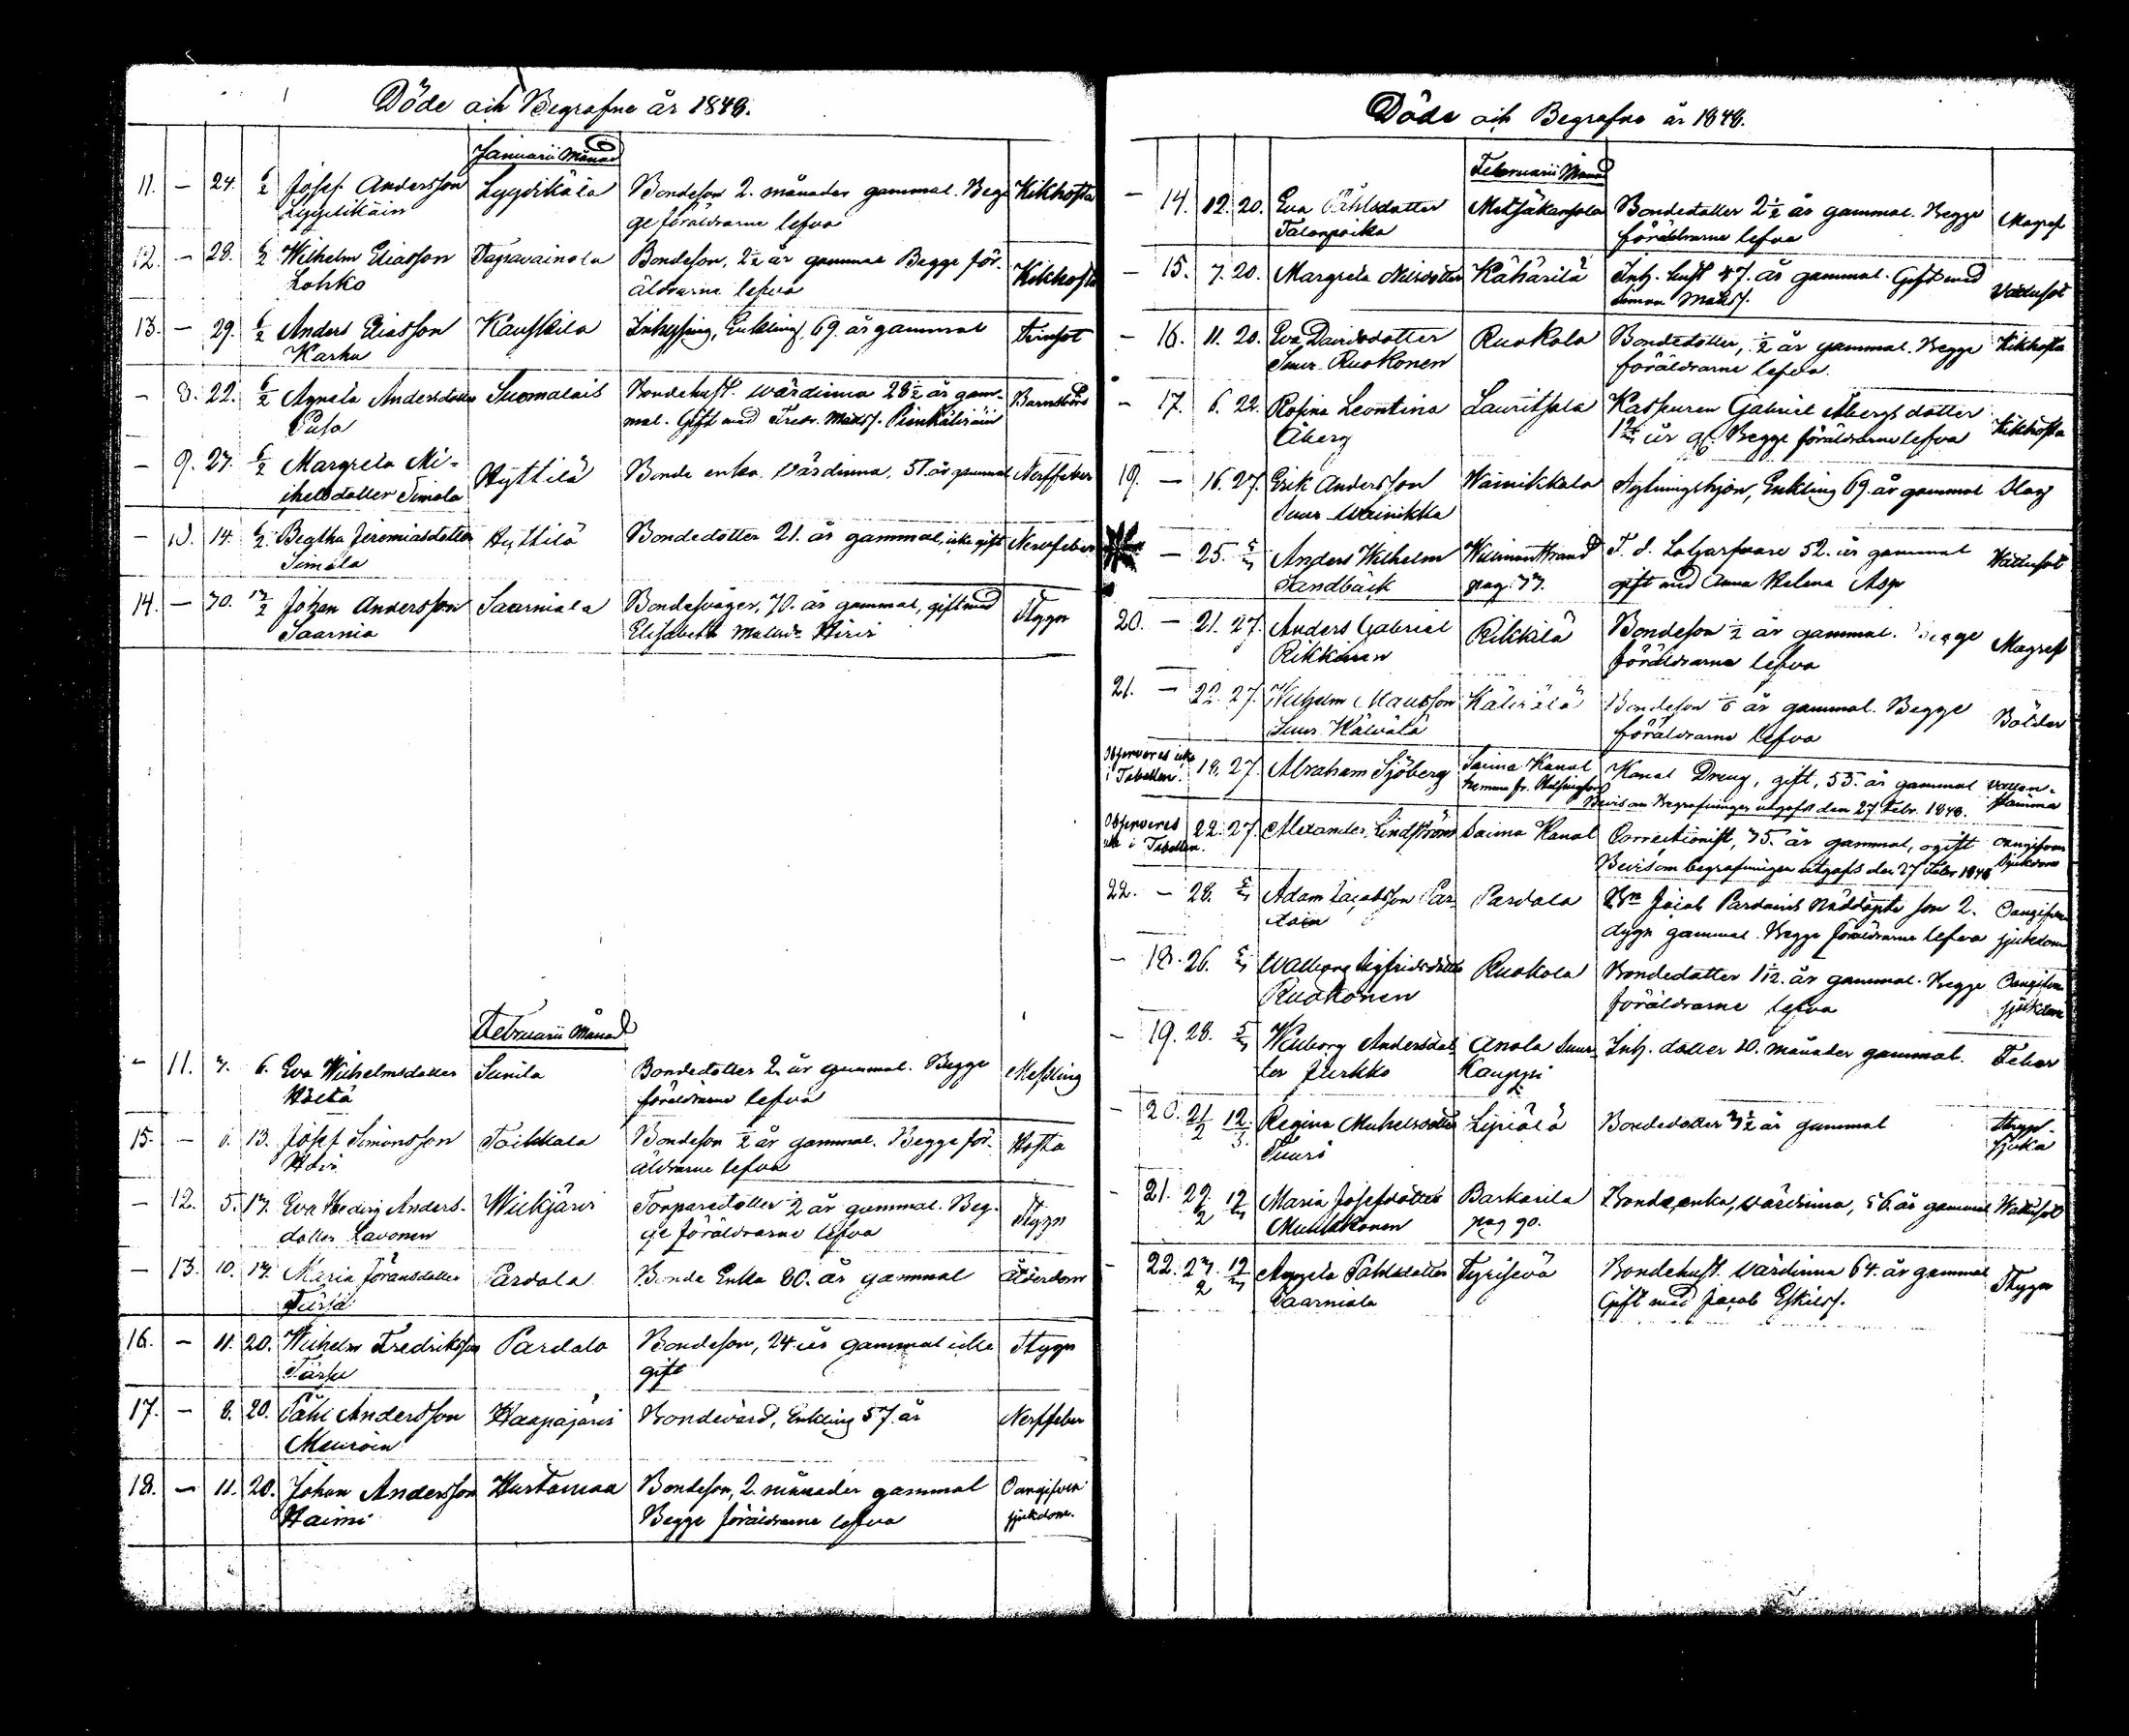 Döde och Begrafne år 1848.
Januarii Månad
11. — 24. 6/2 Josef Andersson Lyydikälä Bondeson 2. månader gammal. Beg- Kikhosta
Lyydikäin ge föräldrarne lefva
12. — 28. 6/2 Wilhelm Eliasson Tapavainola Bondeson, 2½ år gammal Begge för- Kikhosta
Lohko äldrarne lefva
13. — 29. 6/2 Anders Eliasson Kauskila Inhysing, Enkling, 69. år gammal
Karhu
— 8. 22. 6/2 Agneta Andersdotter Suomalais Bondehust. wärdinna 28½ år gam- Barnsbörd
Pusa mal. Gift med Fredr. Matss.
— 9. 27. 6/2 Margreta Mi- Hyttilä Bonde enka, Värdinna, 51. år gammal Nerffeber
chelsdotter Simola
— 10. 14. 6/2 Beatha Jeremiasdotter Hyttilä Bondedotter 21. år gammal, icke gift Nervfeber
Simola
14. — 30. 13/2 Johan Andersson Saarniala Bondesvåger, 70. år gammal, gift med Stygn
Saarnia Elisabeth Matsdr. Hirvi
Februarii Månad
— 11. 3. 6. Eva Wilhelmsdotter Sunila Bondedotter 2. år gammal. Begge Messling
Hältä föräldrarne lefva
15. — 6. 13. Josef Simonsson Toikkala Bondeson ½ år gammal. Begge för- Hosta
äldrarne lefva
— 12. 5. 13. Eva Hedvig Anders- Wilkjärvi Torparedotter ½ år gammal. Beg- Stygn
dotter Lavonen ge föräldrarne lefva
— 13. 10. 13. Maria Göransdotter Pardala Bonde Enka 80. år gammal Ålderdom
16. — 11. 20. Wilhelm Fredriksson Pardala Bondeson, 24. år gammal icke Stygn
gift
17. — 8. 20. Påhl Andersson Haapajärvi Bondevärd, Enkling 57. år Nerffeber
18. — 11. 20. Johan Andersson Hurtanmaa Bondeson, 2. månader gammal Oangifven
Haimi Begge föräldrarne lefva sjukdom.
Döde och Begrafne år 1848.
Februarii Månad
— 14. 12. 20. Eva Påhlsdotter Metsäkansola Bondedotter 2½ år gammal. Begge Magref
Talonpoika föräldrarne lefva
— 15. 7. 20. Margreta Nilsdotter Kähärilä Inh. hust. 47. år gammal. Gift med Vådusot
Simon Matss.
— 16. 11. 20. Eva Davidsdotter Ruokola Bondedotter, ½ år gammal. Begge Kikhosta
Suur-Ruokonen föräldrarne lefva.
— 17. 6. 22. Rosina Leontina Lauritsala Gabriel Åbergs dotter Kikhosta
Åberg år gl. Begge föräldrarne lefva
19. — 16. 27. Erik Andersson Wainikkala Enkling 69. år gammal Slag
Suur-Wainikka
— 25. 5/3 Anders Wilhelm Willmanstrand T. d. 52. år gammal Vådusot
Sandbäck pag. 33. gift med Anna Helena Asp
20. — 21. 27. Anders Gabriel Rikkilä Bondeson ½ år gammal. Begge Magref
Rikkinen föräldrarne lefva
21. — 22. 27. Wilhelm Mattsson Kälvälä Bondeson år gammal. Begge Bölder
Suur Kälvälä föräldrarne lefva
Observeras icke i Tabellen. 18. 27. Abraham Sjöberg Saima Kanal Kanal Dreng, gift, 53. år gammal
hemma fr. Helsingfors Bevis om begrafningen utgafs den 27 Febr. 1848.
Observeras icke i Tabellen. 22. 27. Alexander Lindström Saima Kanal Correctionist, 35. år gammal, ogift Oangifven
Bevis om begrafningen utgafs den 27 Febr 1848 sjukdom
22. — 28. 5/3 Adam Jacobsson Par- Pardala Jacob Pardains Nöddöpte son 2. Oangifven
dain dygn gammal. Begge föräldrarne lefva sjukdom
— 18. 26. 5/3 Walborg Sigfridsdotter Ruokola Bondedotter 1 1/12. år gammal. Begge Oangifven
Ruokonen föräldrarne lefva sjukdom
— 19. 28. 5/3 Walborg Andersdot- Anola Suur- Inh. dotter 10. månader gammal. Feber
ter Jurkko Kauppi
— 20. 21/2 12/3. Regina Michelsdotter Bondedotter 3½ år gammal Stryp-
Tuuri sjuka
— 21. 29/2 12/3 Maria Josefsdotter Barkarila Bonde enka, värdinna, 56. år gammal Wattusot
Muukkonen pag 90.
— 22. 27/2 12/3 Agneta Påhlsdotter Tyrisevä Bondehust. värdinna 64. år gammal Stygn
Saarniala Gift med Jacob Eskilss.